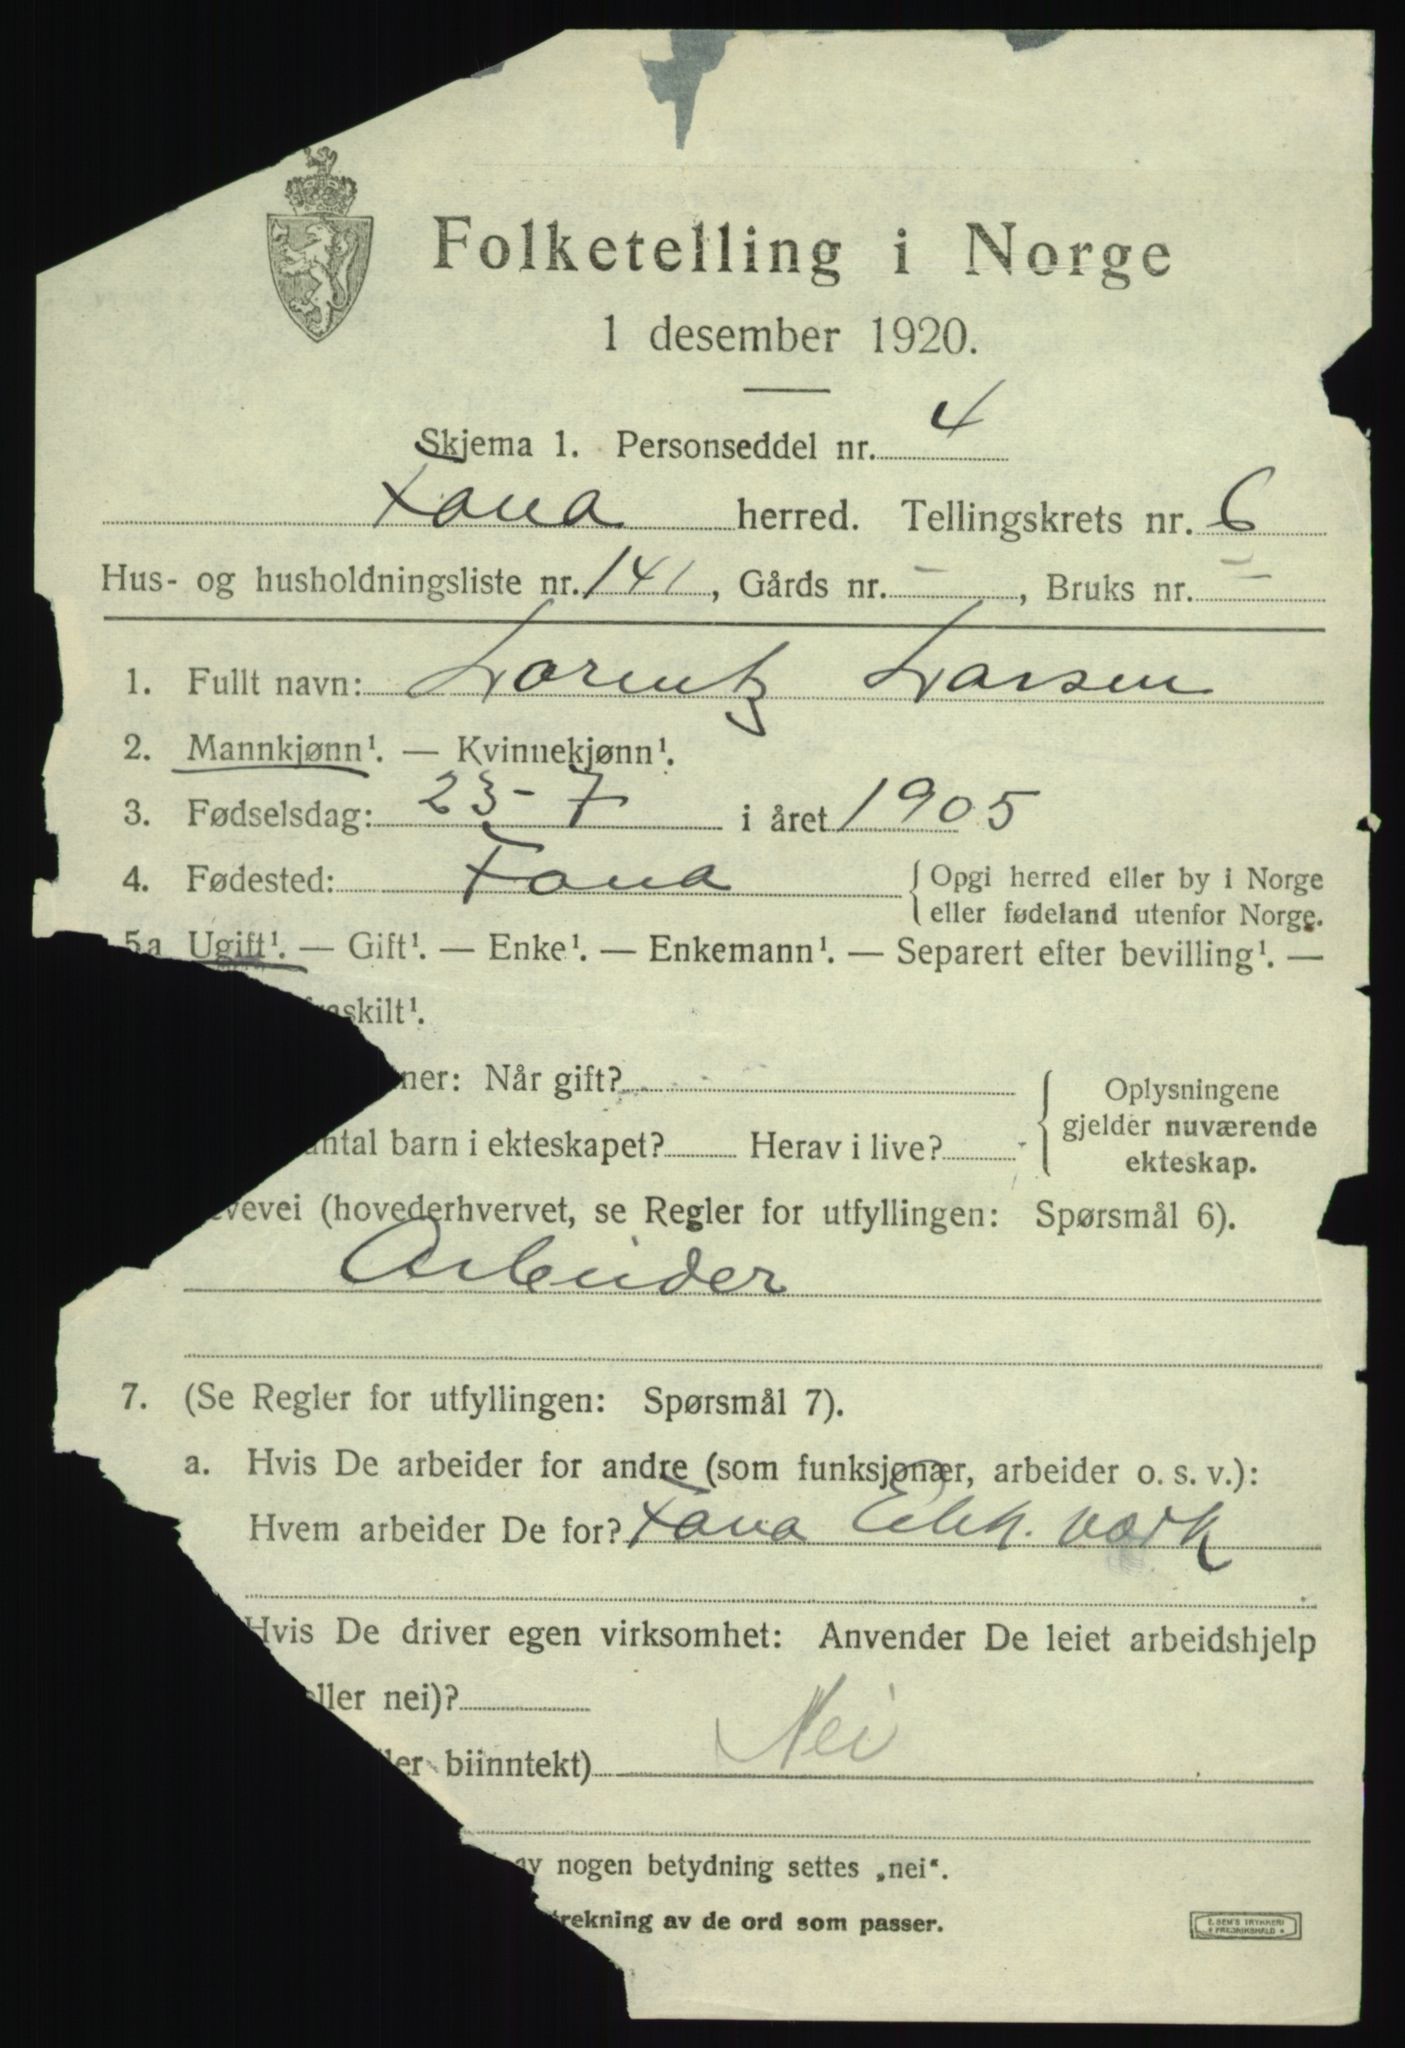 Folketelling i Norge
1 desember 1920.
Skjema 1. Personseddel nr. 4
Fana herred. Tellingskrets nr. 6
Hus- og husholdningsliste nr. 141, Gårds nr. –, Bruks nr. –
1. Fullt navn: Lorentz Larsen
2. Mannkjønn¹. — Kvinnekjønn¹.
3. Fødselsdag: 23-7 i året 1905
4. Fødested: Fana { Opgi herred eller by i Norge
eller fødeland utenfor Norge.
5a Ugift¹. — Gift¹. — Enke¹. — Enkemann¹. — Separert efter bevilling¹. —
raskilt¹.
ner: Når gift?
Oplysningene
gjelder nuværende
ekteskap.
antal barn i ekteskapet? Herav i live?
evevei (hovederhvervet, se Regler for utfyllingen: Spørsmål 6).
Arbeider
7. (Se Regler for utfyllingen: Spørsmål 7).
a. Hvis De arbeider for andre (som funksjonær, arbeider o. s. v.):
Hvem arbeider De for? Fana Elek. værk
Hvis De driver egen virksomhet: Anvender De leiet arbeidshjelp
eller nei)?
ller biinntekt) Nei
av nogen betydning settes „nei“.
trekning av de ord som passer.
E. SEM'S TRYKKERI
FREDRIKSHALD